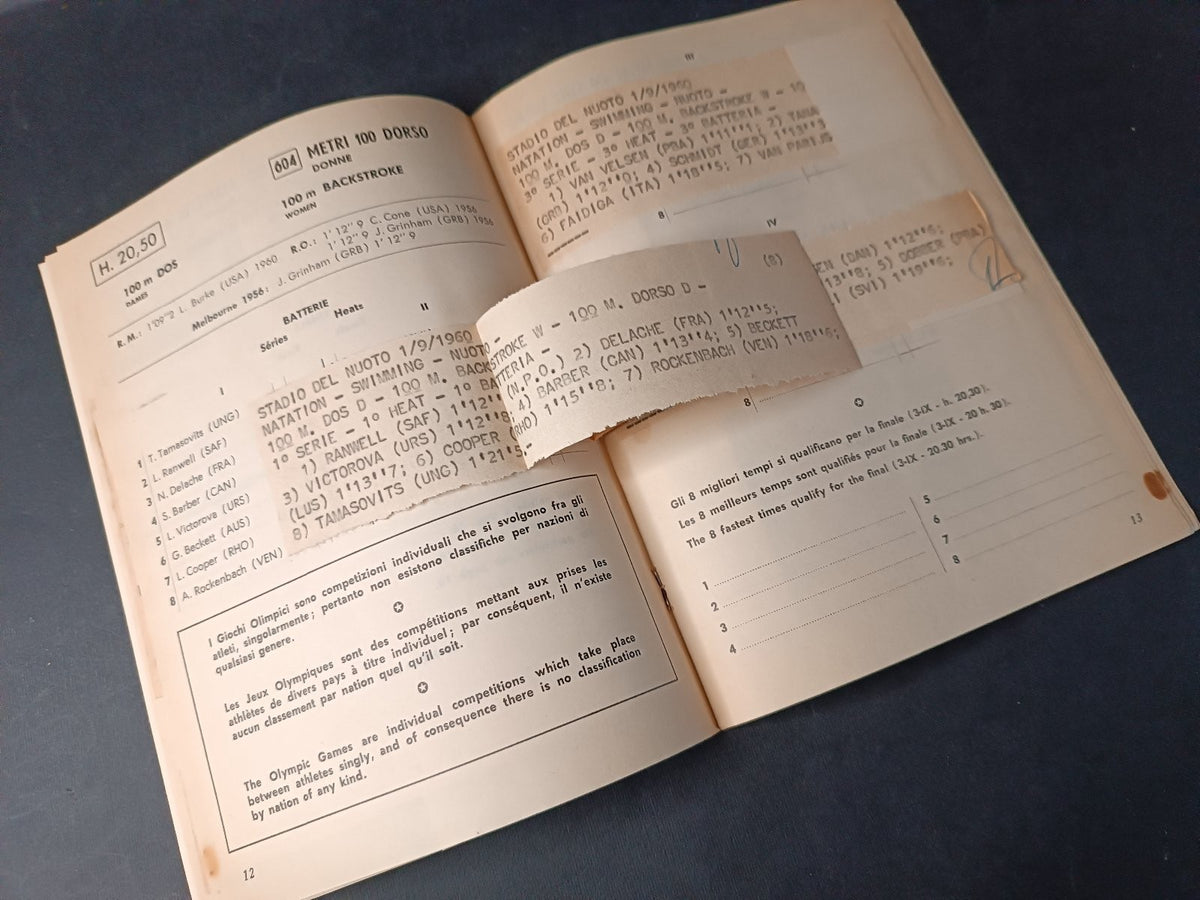 604 METRI 100 DORSO
DONNE
100 m BACKSTROKE
WOMEN
H. 20,50
100 m DOS
DAMES
R.M.: 1'09"2 L. Burke (USA) 1960 R.O.: 1' 12" 9 C. Cone (USA) 1956
1' 12" 9 J. Grinham (GRB) 1956
Melbourne 1956: J. Grinham (GRB) 1' 12" 9
BATTERIE
Séries Heats
I
II
1 T. Tamasovits (UNG)
2 L. Ranwell (SAF)
3 N. Delache (FRA)
4 S. Barber (CAN)
5 L. Victorova (URS)
6 G. Beckett (AUS)
7 L. Cooper (RHO)
8 A. Rockenbach (VEN)
STADIO DEL NUOTO 1/9/1960
NATATION - SWIMMING - NUOTO -
100 M. DOS D - 100 M. BACKSTROKE W - 100 M. DORSO D -
1º SERIE - 1º HEAT - 1º BATTERIA -
1) RANWELL (SAF) 1'12'' (N.P.O.) 2) DELACHE (FRA) 1'12''5;
3) VICTOROVA (URS) 1'12''8; 4) BARBER (CAN) 1'13''4; 5) BECKETT
(LUS) 1'13''7; 6) COOPER (RHO) 1'15''8; 7) ROCKENBACH (VEN) 1'18''6;
8) TAMASOVITS (UNG) 1'21'5.-
(8)
I Giochi Olimpici sono competizioni individuali che si svolgono fra gli
atleti, singolarmente; pertanto non esistono classifiche per nazioni di
qualsiasi genere.
Les Jeux Olympiques sont des compétitions mettant aux prises les
athlètes de divers pays à titre individuel; par conséquent, il n'existe
aucun classement par nation quel qu'il soit.
The Olympic Games are individual competitions which take place
between athletes singly, and of consequence there is no classification
by nation of any kind.
12
III
STADIO DEL NUOTO 1/9/1960
NATATION - SWIMMING - NUOTO -
100 M. DOS D - 100 M. BACKSTROKE W - 10
3º SERIE - 3º HEAT - 3º BATTERIA -
1) VAN VELSEN (PBA) 1'11''1; 2) TANA
(GRD) 1'12''0; 4) SCHMIDT (GER) 1'13''3
6) FAIDIGA (ITA) 1'18''5; 7) VAN PARIJS
8
IV
EN (CAN) 1'12''6;
13''8; 5) DOBBER (PBA)
I (SVI) 1'19''6;
8
Gli 8 migliori tempi si qualificano per la finale (3-IX - h. 20,30).
Les 8 meilleurs temps sont qualifiés pour la finale (3-IX - 20 h. 30).
The 8 fastest times qualify for the final (3-IX - 20.30 hrs.).
1
2
3
4
5
6
7
8
13